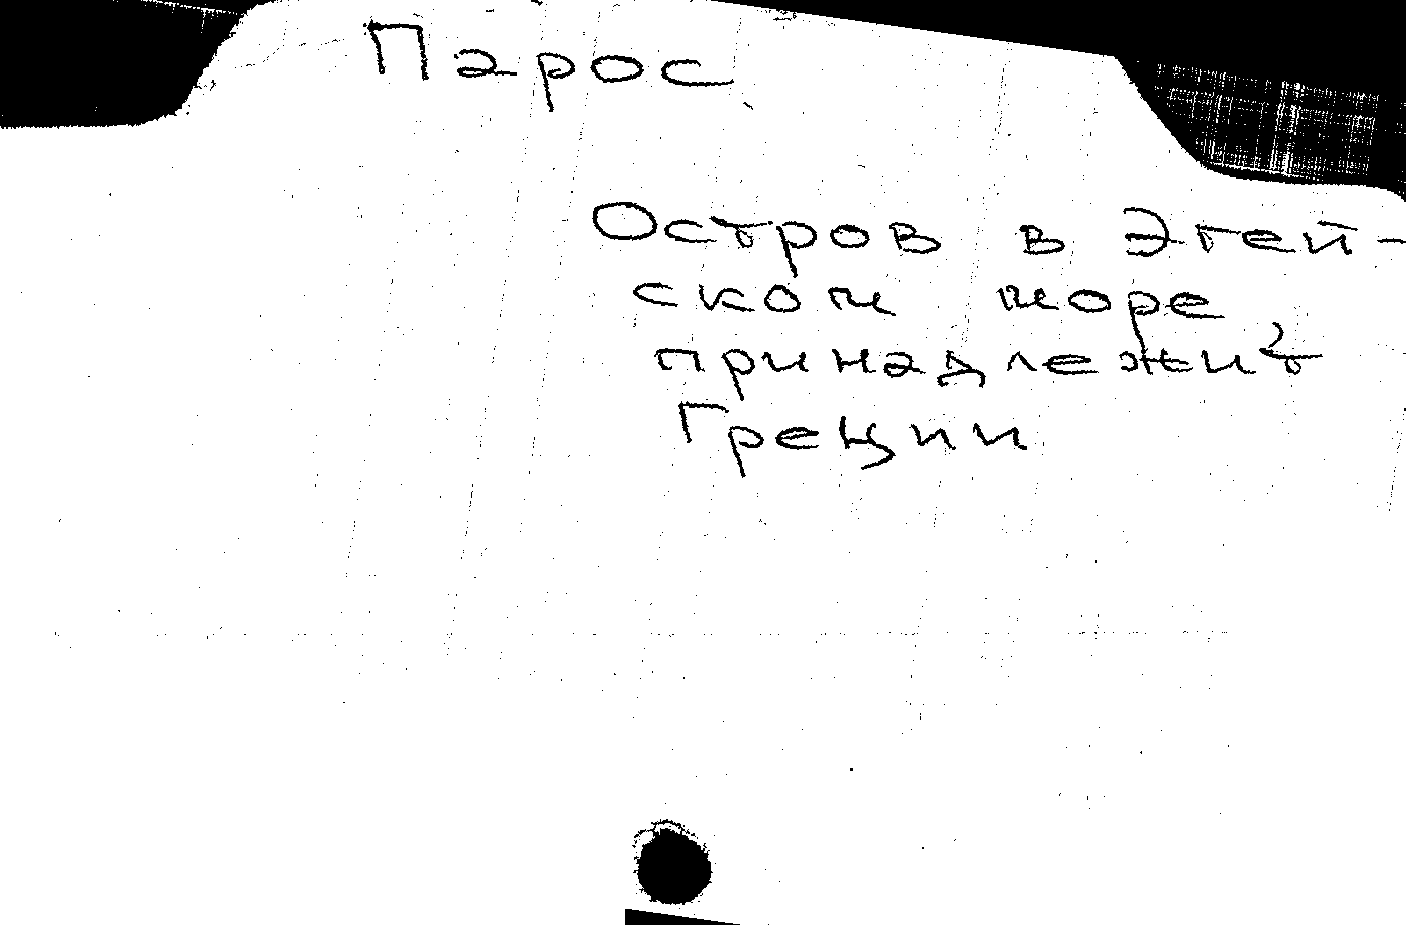 Парос
Остров в Эгей-
ском море,
принадлежит
Греции